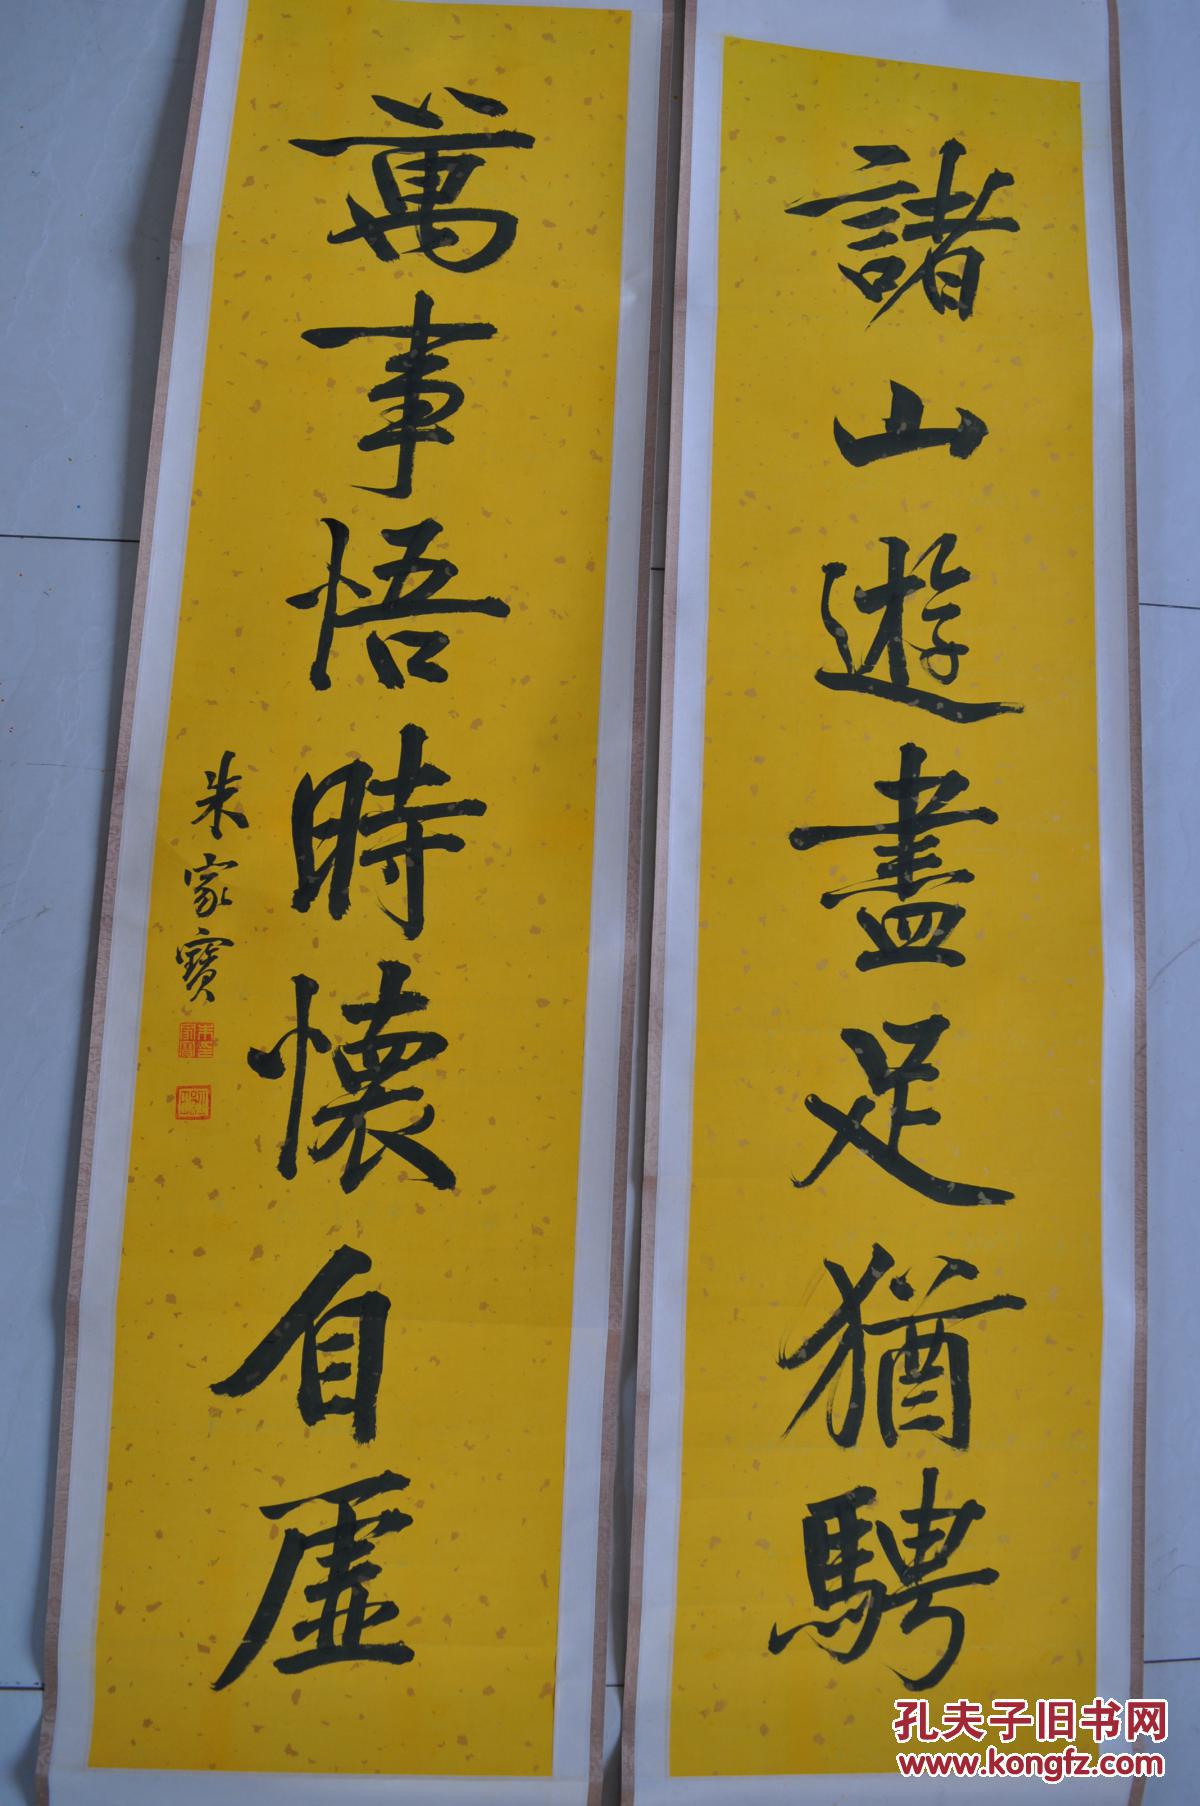 諸山遊盡足猶騁
萬事悟時懷自虛
朱家寶
孔夫子旧书网
www.kongfz.com